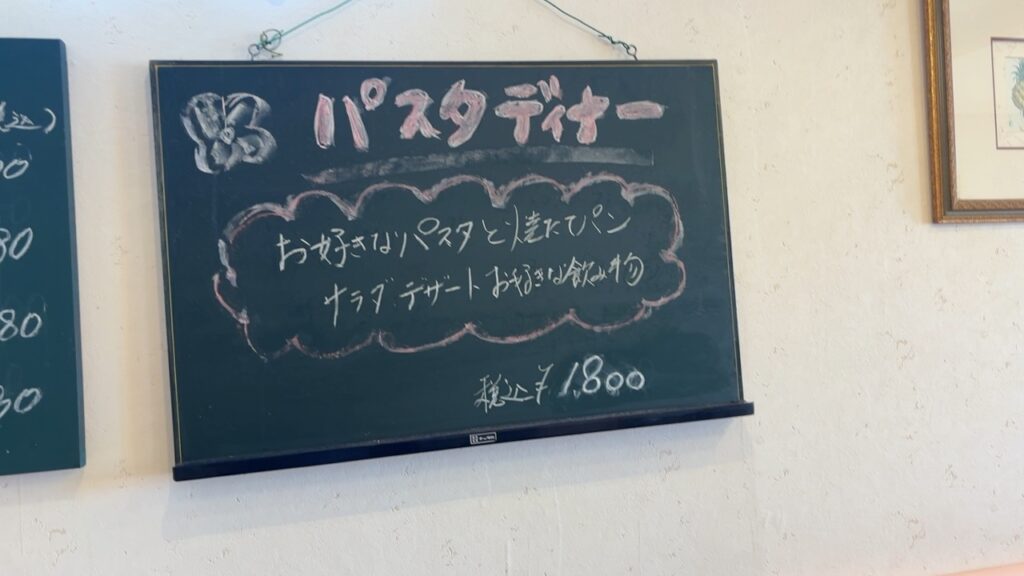 パスタディナー
お好きなパスタと焼たてパン
サラダ デザート お好きな飲み物
税込¥1,800
込)
00
80
80
80